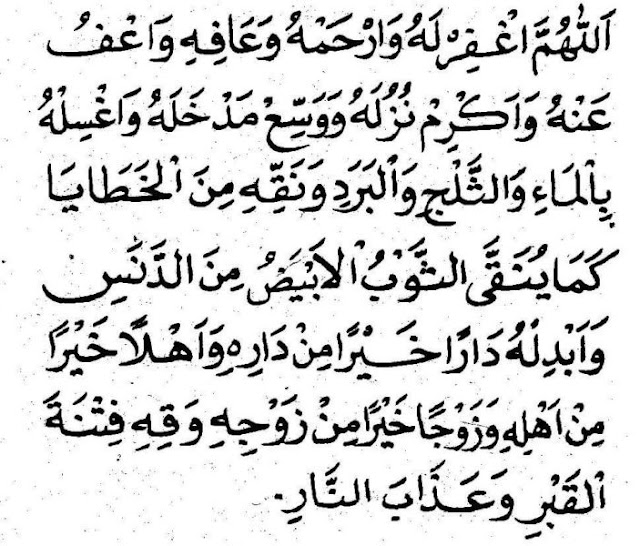 اَللّٰهُمَّ اغْفِرْ لَهُ وَارْحَمْهُ وَعَافِهِ وَاعْفُ
عَنْهُ وَاَكْرِمْ نُزُلَهُ وَوَسِّعْ مَدْخَلَهُ وَاغْسِلْهُ
بِالْمَاءِ وَالثَّلْجِ وَالْبَرَدِ وَنَقِّهِ مِنَ الْخَطَايَا
كَمَا يُنَقَّى الثَّوْبُ الْاَبْيَضُ مِنَ الدَّنَسِ
وَاَبْدِلْهُ دَارًا خَيْرًا مِنْ دَارِهِ وَاَهْلًا خَيْرًا
مِنْ اَهْلِهِ وَزَوْجًا خَيْرًا مِنْ زَوْجِهِ وَقِهِ فِتْنَةَ
الْقَبْرِ وَعَذَابَ النَّارِ.